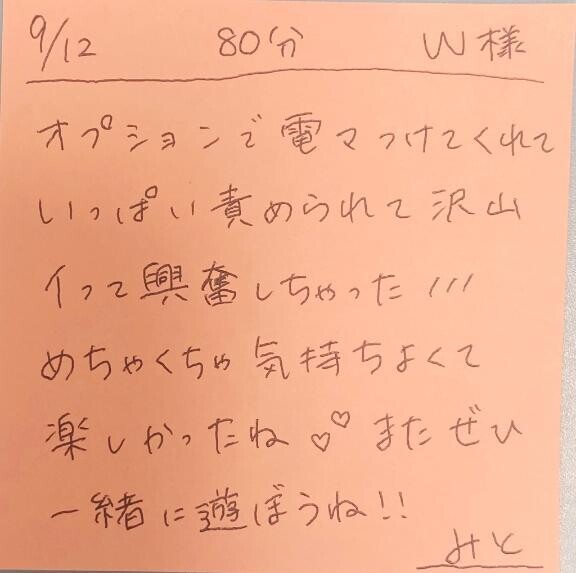 9/12 80分 W様
オプションで電マつけてくれて
いっぱい責められて沢山
イって興奮しちゃった///
めちゃくちゃ気持ちよくて
楽しかったね♡♡またぜひ
一緒に遊ぼうね!!
みと